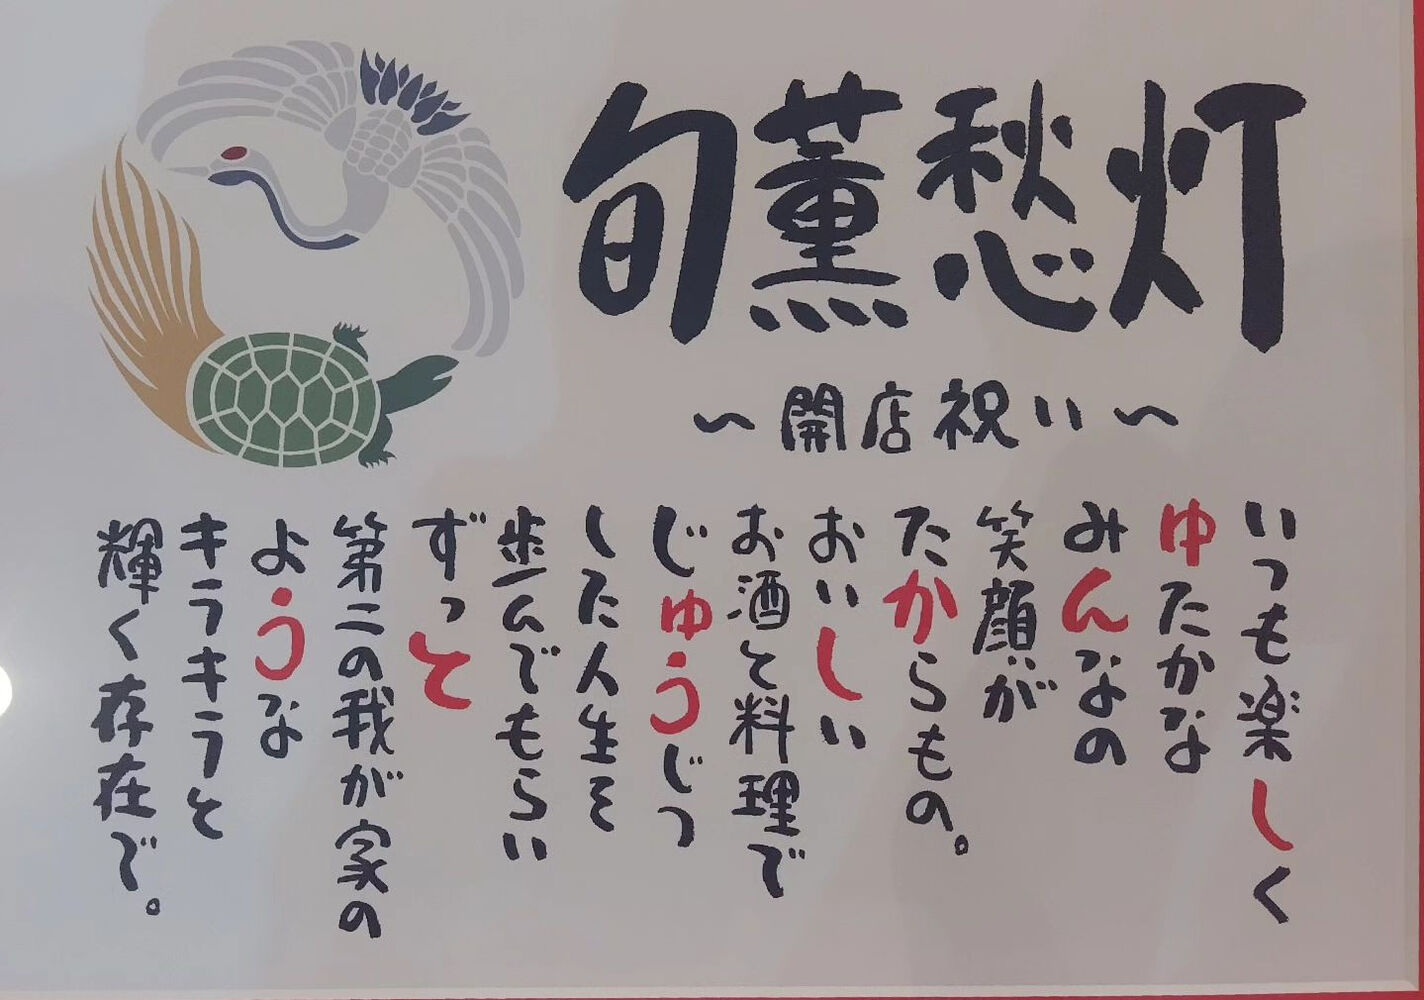 旬薫愁灯
～開店祝い～
いつも楽しく
ゆたかな
みんなの
笑顔が
たからもの。
おいしい
お酒と料理で
じゅうじつ
した人生を
歩んでもらい
ずっと
第二の我が家の
ような
キラキラと
輝く存在で。